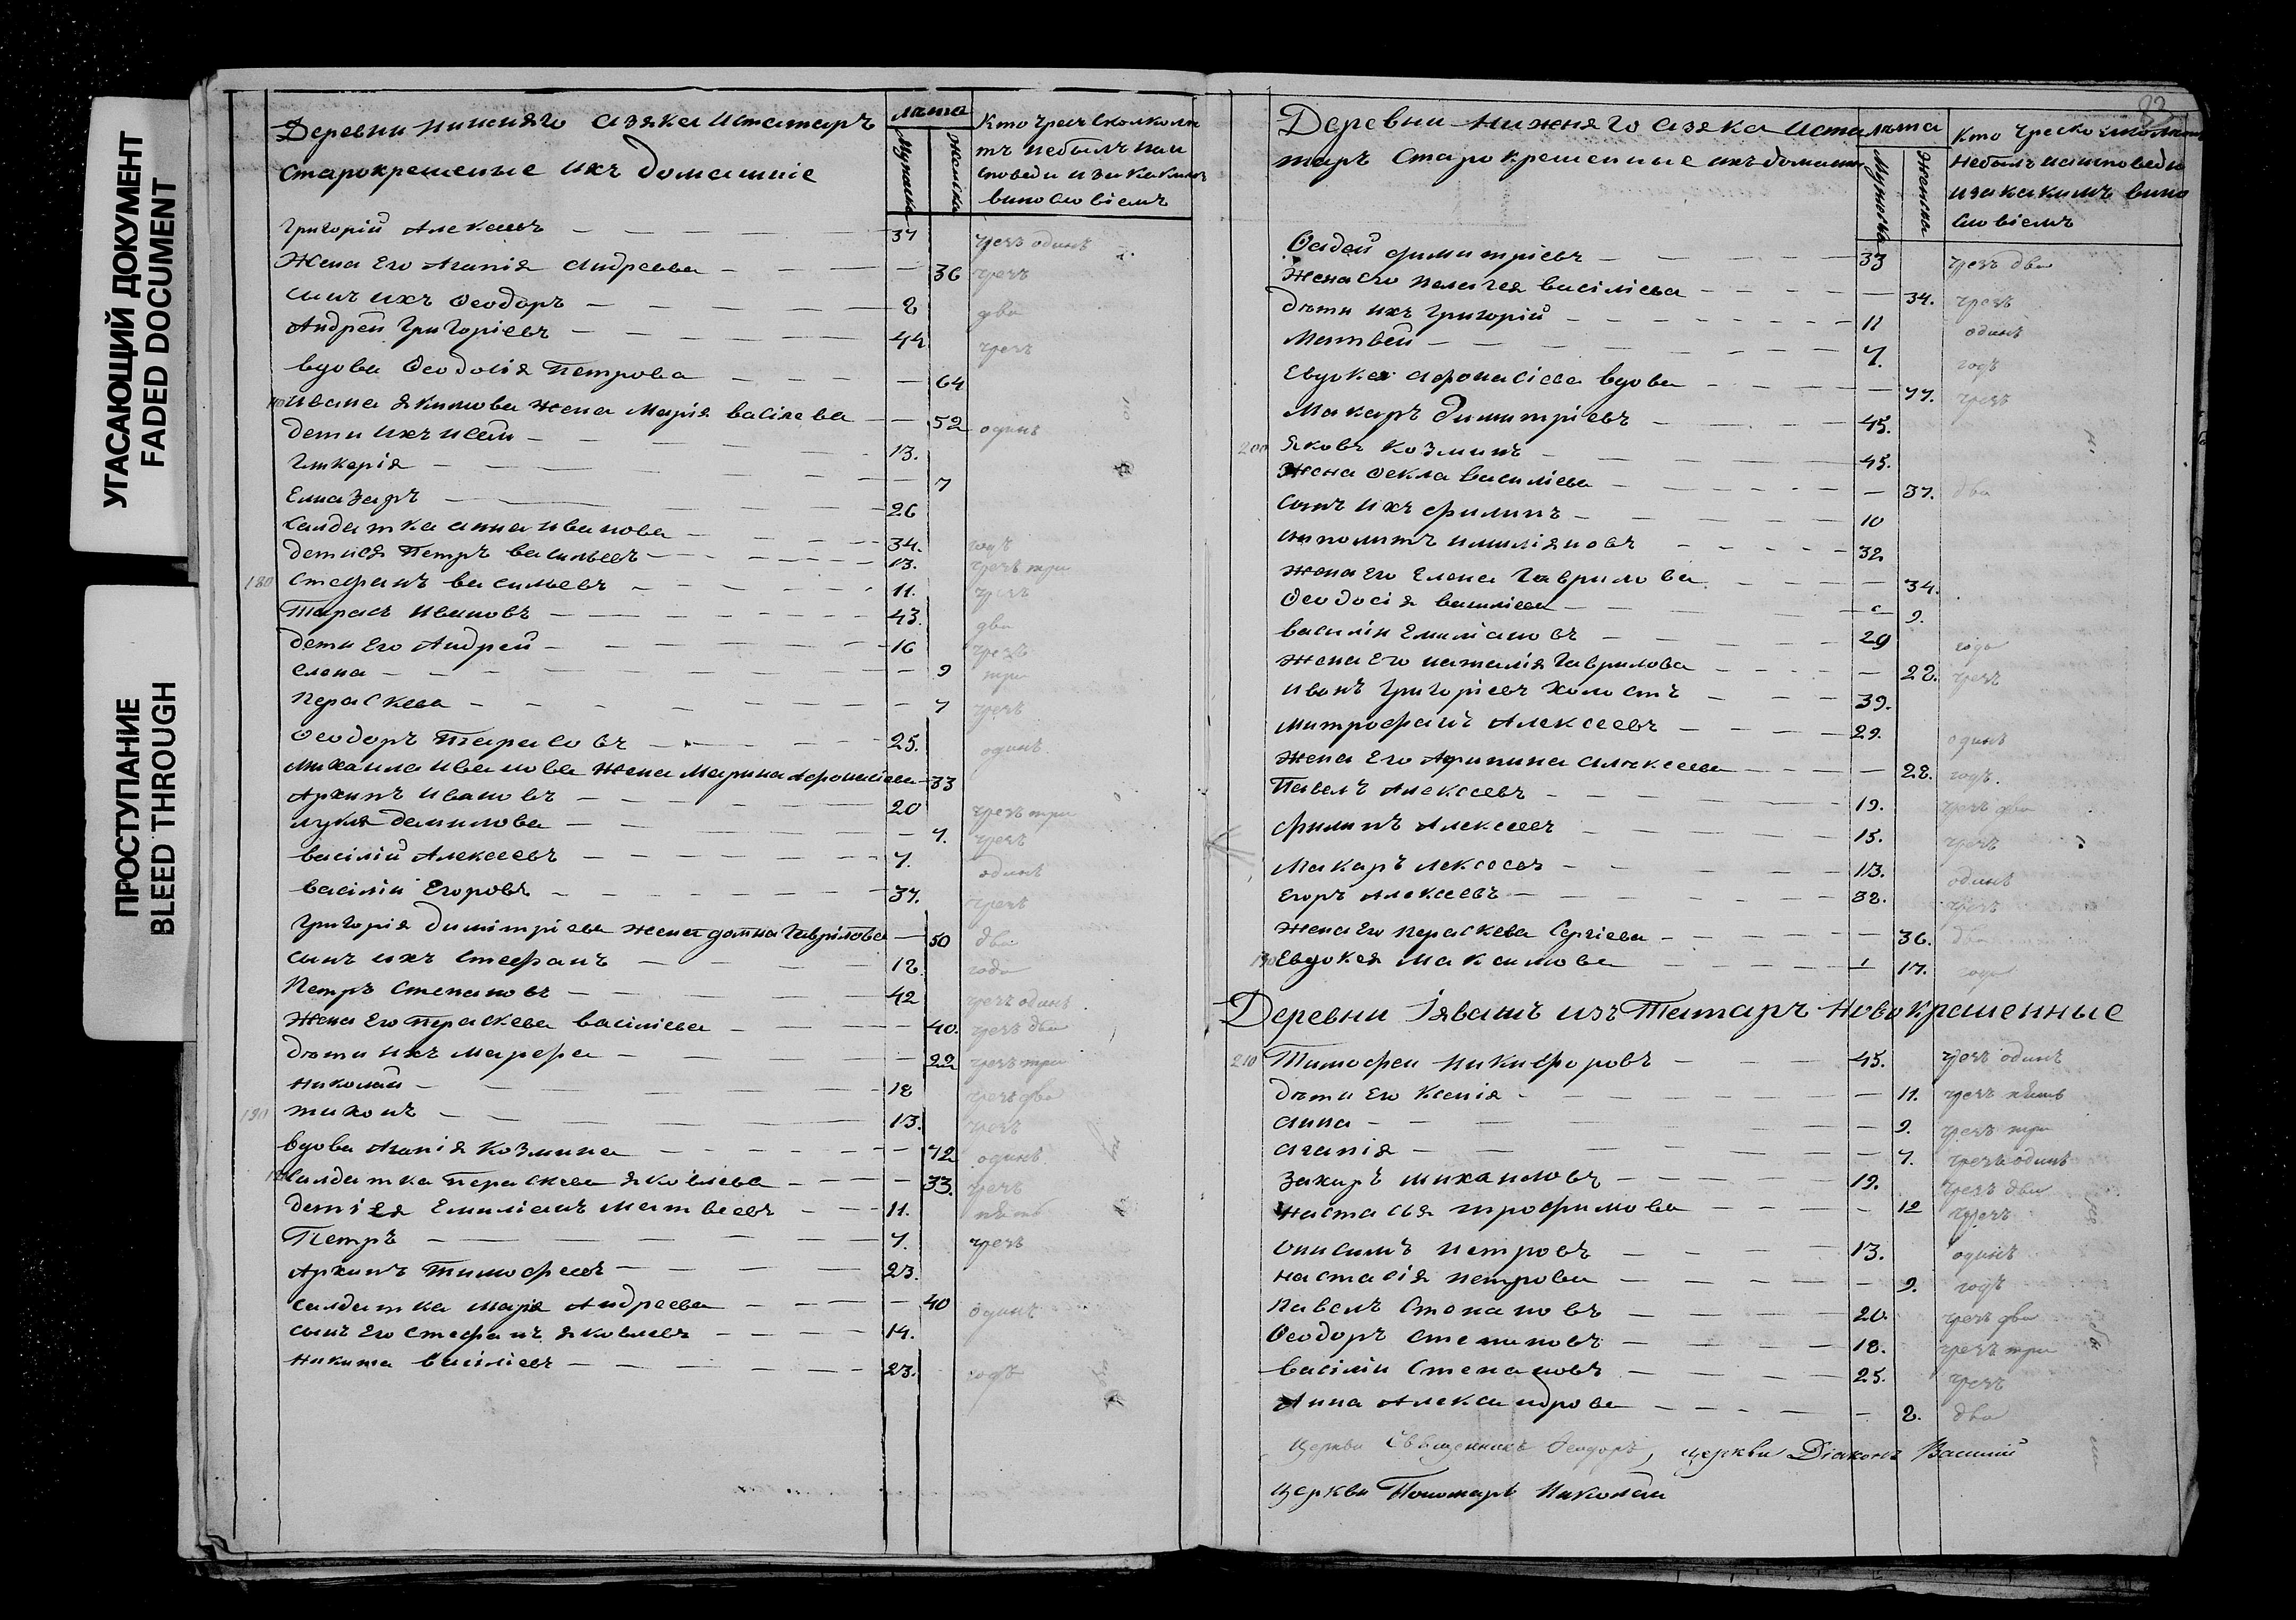 УГАСАЮЩИЙ ДОКУМЕНТ
FADED DOCUMENT
ПРОСТУПАНИЕ
BLEED THROUGH
Деревни нижняго азяка Истатаръ
старокрещеные ихъ домашніе
лѣта
Мужеска
Женска
Григорій Алексеевъ 37 чрезъ одинъ
Жена Его Агапія Андреева 36 чрезъ
сынъ ихъ Ѳеодоръ 8 два
Андрей Григоріевъ 44 чрезъ
вдова Ѳеодосія Петрова 64
Ивана Якимова жена Марія васілева 52 одинъ
дети ихъ 13.
Гликерія 7
Елиазаръ 26
салдатка анна иванова 34. годъ
детися Петръ васильевъ 13. чрезъ три
180 Стефанъ васильевъ 11. чрезъ
Тарасъ Ивановъ 43. два
дети Его Андрей 16 чрезъ
елена 9 три
Параскева 7 чрезъ
Ѳеодоръ Тарасовъ 25. одинъ
Михаила Иванова жена Марина Афонасіева 33
Архипъ Ивановъ 20 чрезъ три
данилова 7. чрезъ
васілій Алексеевъ 7. одинъ
васілій Егоровъ 37. чрезъ
Григорія димитріева жена домна Гаврілова 50 два
сынъ ихъ Стефанъ 18. года
Петръ Степановъ 42 чрезъ одинъ
Жена Его Параскева васіліева 40. чрезъ два
дѣти ихъ Марфа 22 чрезъ три
николай 18 чрезъ два
190 тихонъ 13. чрезъ
вдова Агапія Козмина 72 одинъ
салдатка Параскева Яковлева 33. чрезъ
деті Ея Емиліанъ Матвеевъ 11. пять
Петръ 7. чрезъ
Архипъ Тимофеевъ 23.
салдатка Марія Андреева 40 одинъ
сынъ Его Стефанъ Яковлевъ 14.
никита васіліевъ 23. годъ
Деревни Нижняго азяка Иста
таръ старокрещенные ихъ домашн
лѣта
Мужеска
Женска
Ѳадей димитріевъ 33 чрезъ два
Жена Его Пелагея васіліева 34. чрезъ
дѣти ихъ Григорій 11 одинъ
Матвей 7. годъ
Евдокея афонасіева вдова 77. чрезъ
Макаръ димитріевъ 45.
200 Яковъ Козминъ 45.
Жена Ѳекла васіліева 37. два
сынъ ихъ филипъ 10
иполитъ имиліяновъ 32
жена его Елена Гаврилова 34.
Ѳеодосія васіліева 9.
василій Емиліановъ 29 года
жена Его наталія Гаврилова 28. чрезъ
иванъ Григоріевъ холостъ 39.
митрофанъ Алексеевъ 29. одинъ
жена Его Афипина алексеева 28. годъ.
Павелъ Алексеевъ 19. чрезъ два
филипъ Алексеевъ 15. чрезъ
Макаръ лексеевъ 13. одинъ
Егоръ Алексеевъ 38. чрезъ
жена Его Параскева Сергіева 36. два
Евдокея Максимова 17. года
Деревни Іявашъ изъ Татаръ Новокрещенные
210 Тимофеи никифоровъ 45. чрезъ одинъ
дѣти Его Ксенія 11. чрезъ пять
анна 9. чрезъ три
агапія 7. чрезъ одинъ
захаръ михаиловъ 19. чрезъ два
настасья трофимова 12 чрезъ
онисимъ петровъ 13. одинъ
настасія петрова 9. годъ
павелъ Степановъ 20. чрезъ два
Ѳеодоръ степановъ 18. чрезъ три
васілій Степановъ 25. чрезъ
Анна Александрова 8. два
церкви Священникъ Ѳеодоръ, церкви Діаконъ Василий
церкви Пономарь Николай